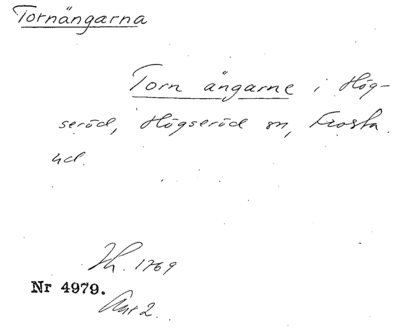 Tornängarna
Torn ängarne i Hög-
seröd, Högseröd sn, Frosta
hd.
Jh. 1769
Nr 4979.
Akt 2.